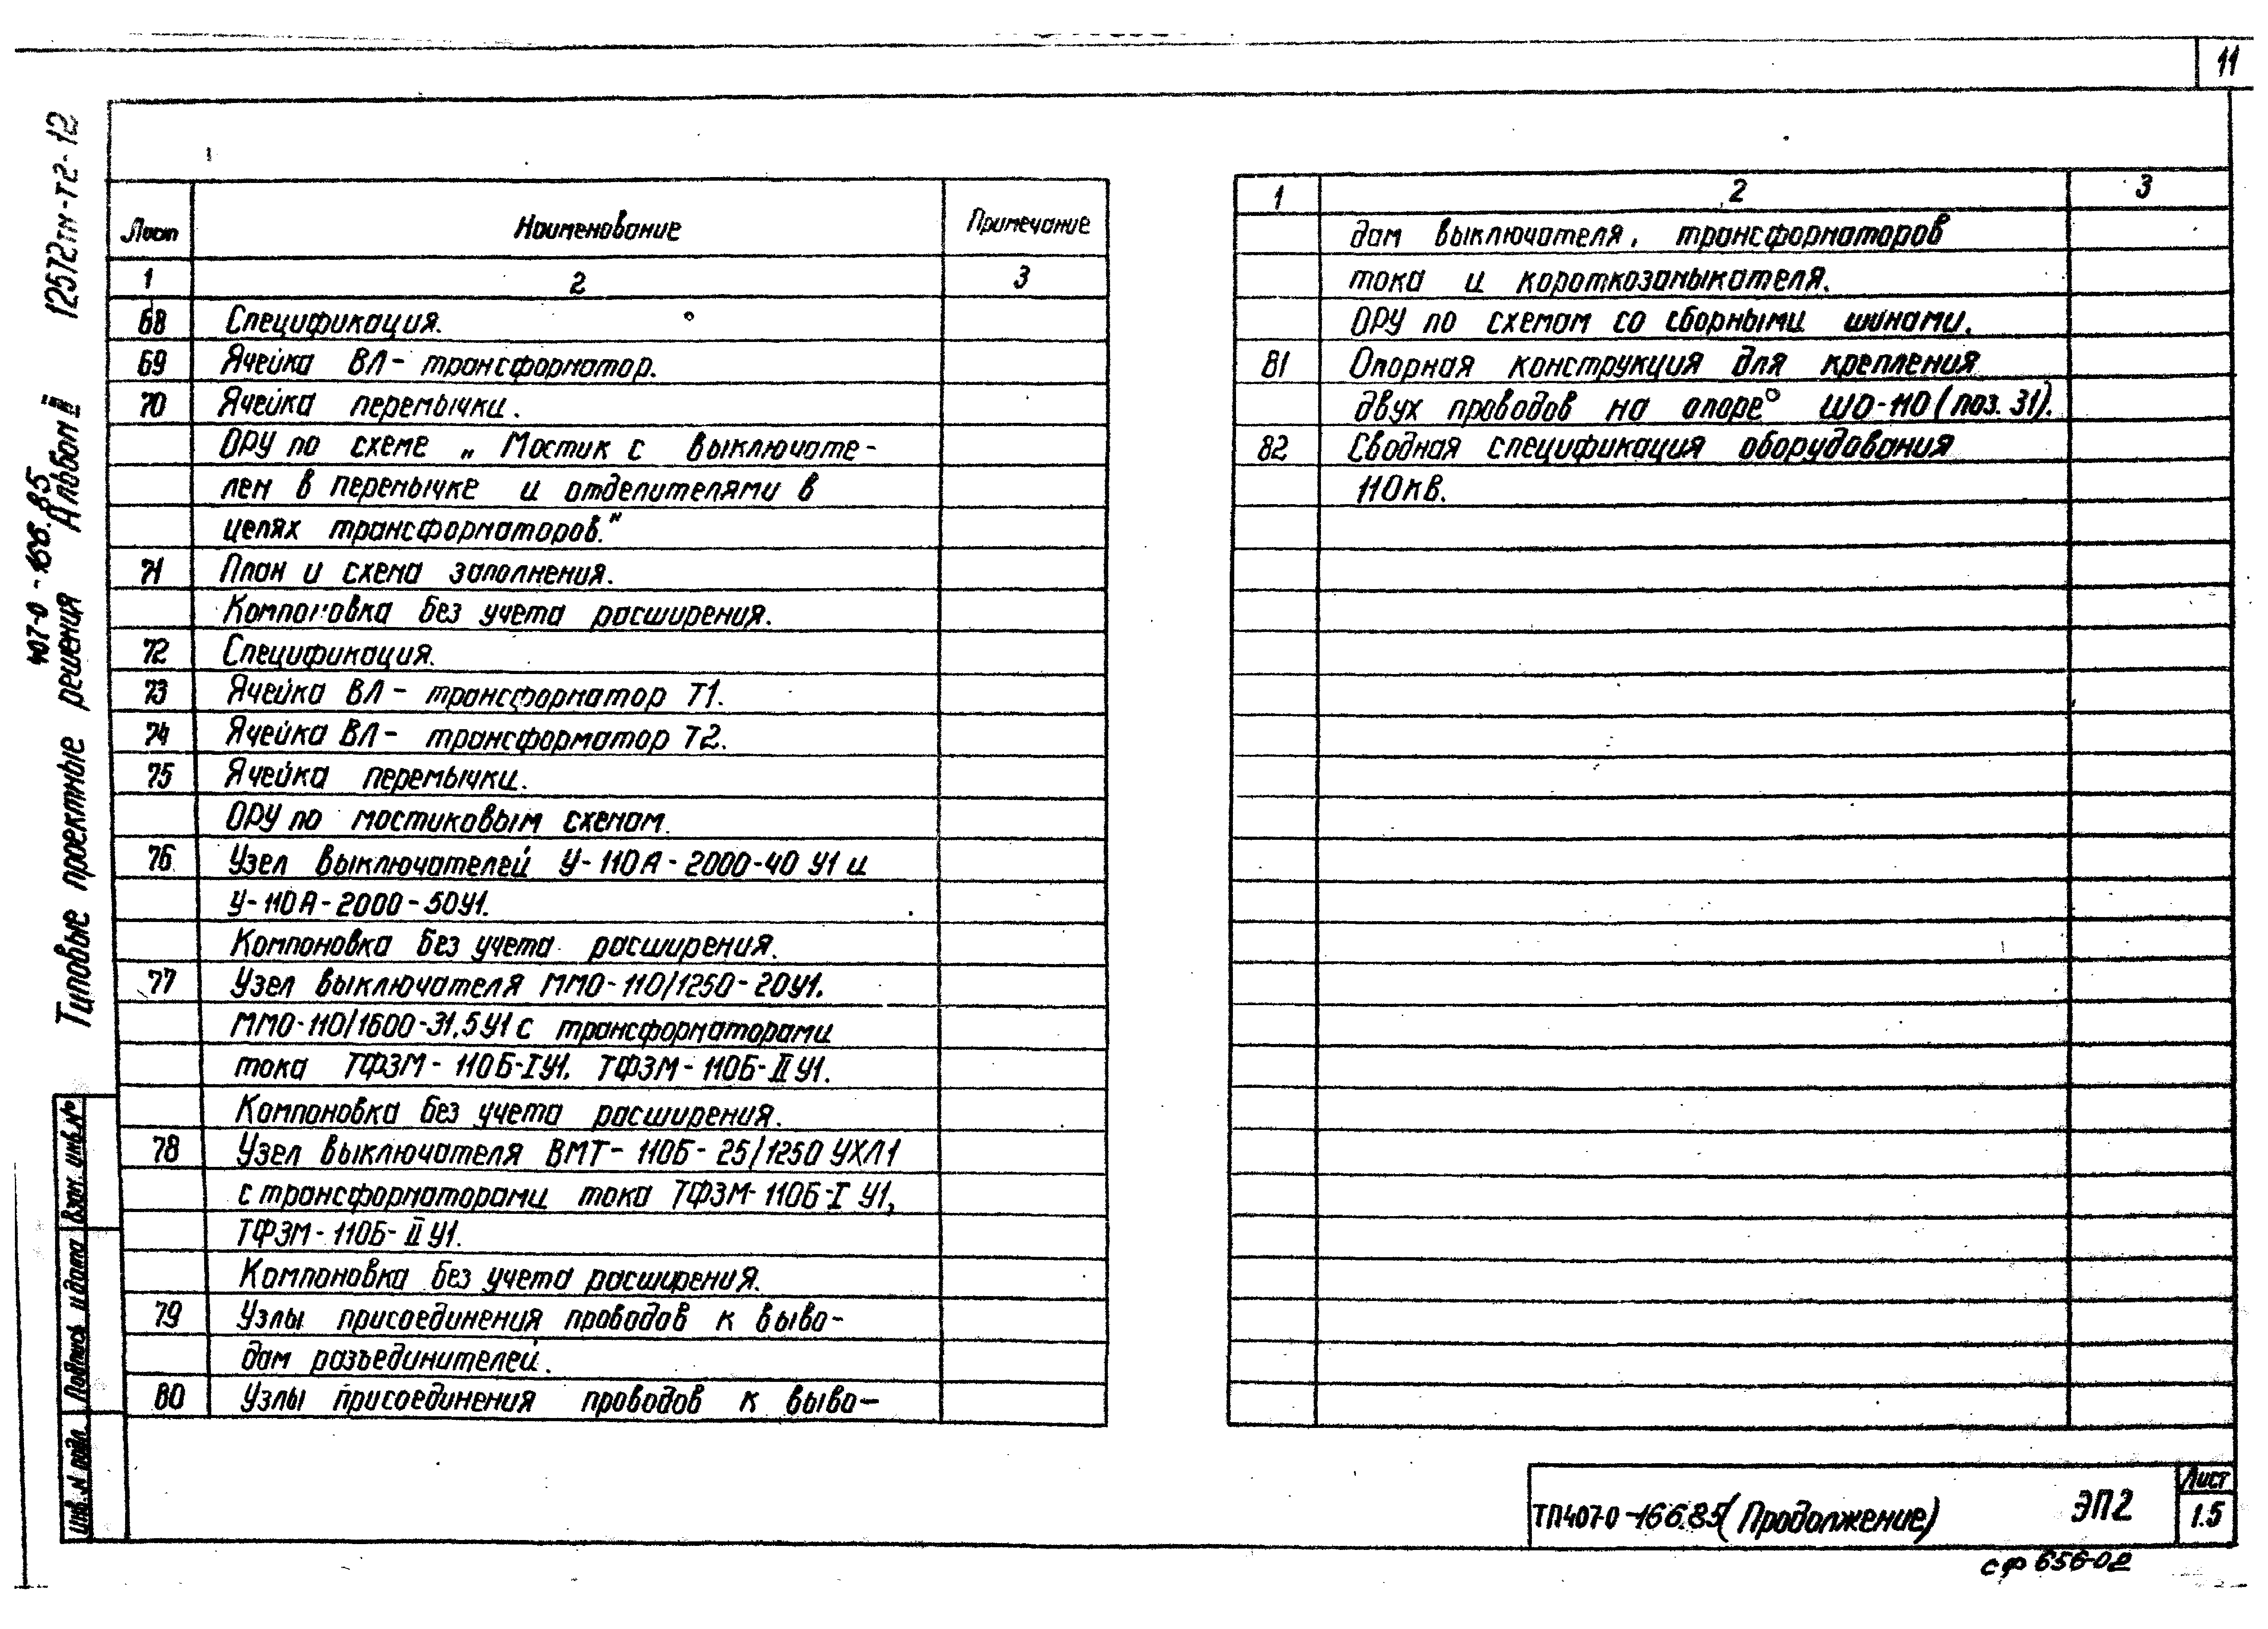 11
12572тм-т2-12
407-0-166.85
Типовые проектные решения Альбом II
Лист Наименование Примечание
1 2 3
68 Спецификация.
69 Ячейка ВЛ - трансформатор.
70 Ячейка перемычки.
ОРУ по схеме „ Мостик с выключате-
лем в перемычке и отделителями в
цепях трансформаторов."
71 План и схема заполнения.
Компоновка без учета расширения.
72 Спецификация.
73 Ячейка ВЛ - трансформатор Т1.
74 Ячейка ВЛ - трансформатор Т2.
75 Ячейка перемычки.
ОРУ по мостиковым схемам.
76 Узел выключателей У-110А-2000-40 У1 и
У-110А-2000-50У1.
Компоновка без учета расширения.
77 Узел выключателя ММО-110/1250-20У1,
ММО-110/1600-31,5У1 с трансформаторами
тока ТФЗМ-110Б-IУ1, ТФЗМ-110Б-IIУ1.
Компоновка без учета расширения.
78 Узел выключателя ВМТ-110Б-25/1250 УХЛ1
с трансформаторами тока ТФЗМ-110Б-I У1,
ТФЗМ-110Б-II У1.
Компоновка без учета расширения.
79 Узлы присоединения проводов к выво-
дам разъединителей.
80 Узлы присоединения проводов к выво-
1 2 3
дам выключателя, трансформаторов
тока и короткозамыкателя.
ОРУ по схемам со сборными шинами.
81 Опорная конструкция для крепления
двух проводов на опоре ШО-110 (поз. 31).
82 Сводная спецификация оборудования
110кВ.
Взам. инв. №
Подпись и дата
Инв. № подл.
ТП407-0-166.85 (Продолжение) ЭП2
Лист
1.5
сф 656-02